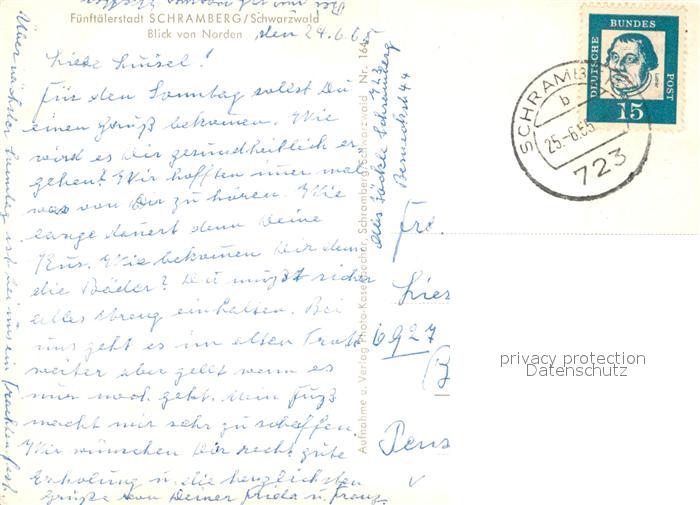 Fünftälerstadt SCHRAMBERG/Schwarzwald
Blick von Norden
den 24.6.65
Liebe Luisel!
Für den Sonntag sollst Du
einen Gruß bekommen. Wie
wird es Dir gesundheitlich er-
gehen? Wir hofften immer mal
was von Dir zu hören. Wie
lange dauert denn Deine
Kur. Wie bekommen Dir denn
die Bäder? Du mußt sicher
alles streng einhalten. Bei
uns geht es im alten Trott
weiter aber gell wenn es
nur noch geht. Mein Fuß
macht mir sehr zu schaffen.
Wir wünschen Dir recht gute
Erholung u. die herzlichsten
Grüße von Deiner Frida u. Franz.
Übernächster Sonntag ist bei uns ein Trachtenfest.
Aufnahme u. Verlag Photo-Kasenbacher, Schramberg/Schwarzwald Nr. 164
Jäckle Schramberg
723
Berneckstr 44
DEUTSCHE
BUNDES
POST
15
SCHRAMBERG
b
25.-6.65
723
Fr.
Lies
6927
Pens
privacy protection
Datenschutz